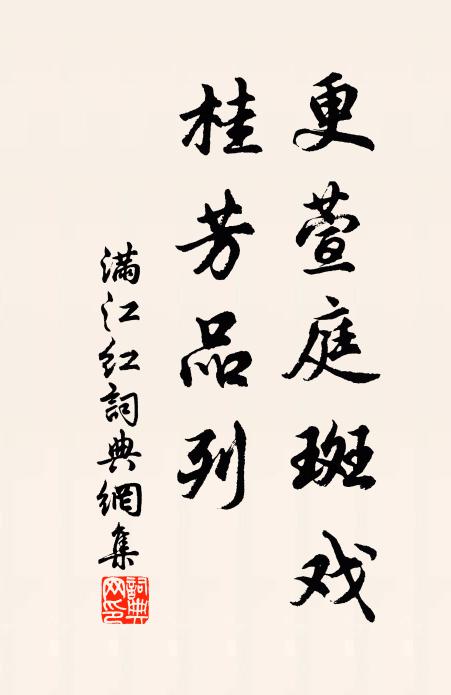 更萱庭斑戏
桂芳品列
满江红詞典網集
詞典网印